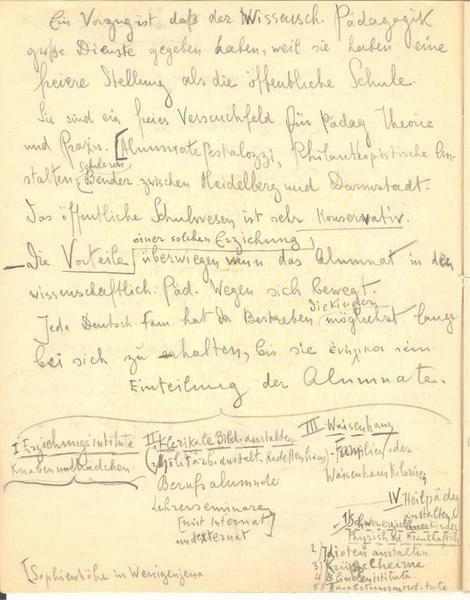 Ein Vorzug ist daß der Wissensch. Pädagogik
große Dienste gegeben haben, weil sie haben eine
freiere Stellung als die öffentliche Schule.
Sie sind ein freies Versuchfeld für Pädag. Theorie
und Praxis. [Alumnate Pestalozzi, Philantropistische An-
stalten, Bender zwischen Heidelberg und Darmstadt.
Das öffentliche Schulwesen ist sehr konservativ.
einer solchen Erziehung
– Die Vorteile überwiegen wenn das Alumnat in den
wissenschaftlich. Päd. Wegen sich bewegt.
die Kinder
Jede Deutsch. Fam. hat das Bestreben möglichst lange
bei sich zu erhalten, bis sie ἐνήλικοι sein.
Einteilung der Alumnate.
I Erziehungsinstitute
Knaben und Mädchen
II Klerikale Bild. anstalten
Militärb. anstalt. Kadettenhaus
Berufsalumnate
Lehrerseminare
[mit Internat]
und externat
III Waisenhaus
Familien der
Waisenhaus Kolonien
IV Heilpädag
anstalten
1) Schwererziehbare Kinder
Physisch
2) Idioten anstalten
3) Krüppelheime
4) Blindeninstitute
5) Taubstummeninstitute
[Sophienhöhe in Wenigenjena